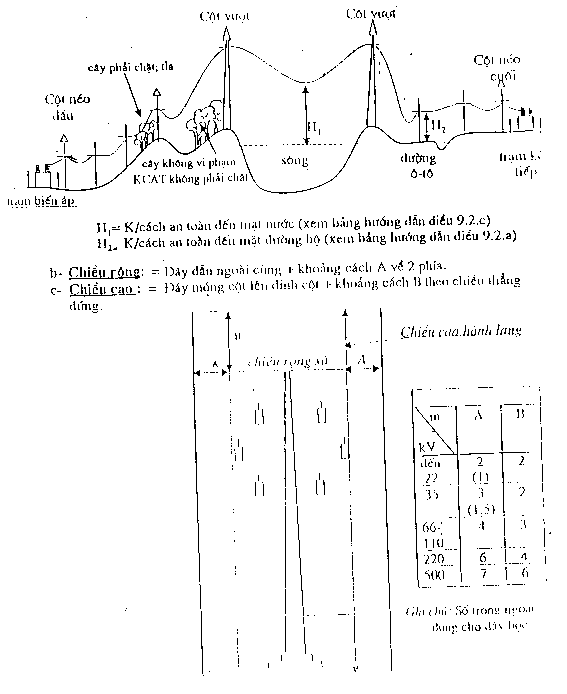 Cột vượt
Cột vượt
cây phải chặt, tỉa
Cột néo
đầu
Cột néo
cuối
H₁
H₂
cây không vi phạm
KCAT không phải chặt
sông
đường
ô-tô
trạm kế
tiếp
trạm biến áp
H₁= K/cách an toàn đến mặt nước (xem bảng hướng dẫn điều 9.2.c)
H₂= K/cách an toàn đến mặt đường bộ (xem bảng hướng dẫn điều 9.2.a)
b- Chiều rộng: = Dây dẫn ngoài cùng + khoảng cách A về 2 phía.
c- Chiều cao : = Đáy móng cột lên đỉnh cột + khoảng cách B theo chiều thẳng
đứng.
Chiều cao hành lang
B
A
chiều rộng xà
A
m
A
B
kV
đến
2
2
22
(1)
35
3
2
(1,5)
66-
4
3
110
220
6
4
500
7
6
Ghi chú: Số trong ngoặc
dùng cho dây bọc